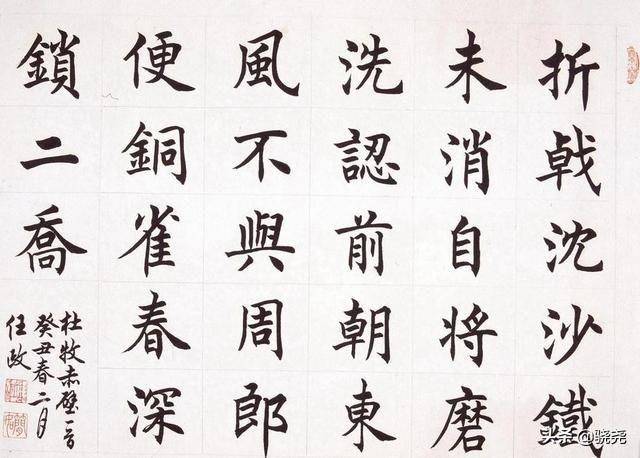 折戟沈沙鐵
未消自將磨
洗認前朝東
風不與周郎
便銅雀春深
鎖二喬
杜牧赤壁一首
癸丑春二月
任政
头条@骁尧